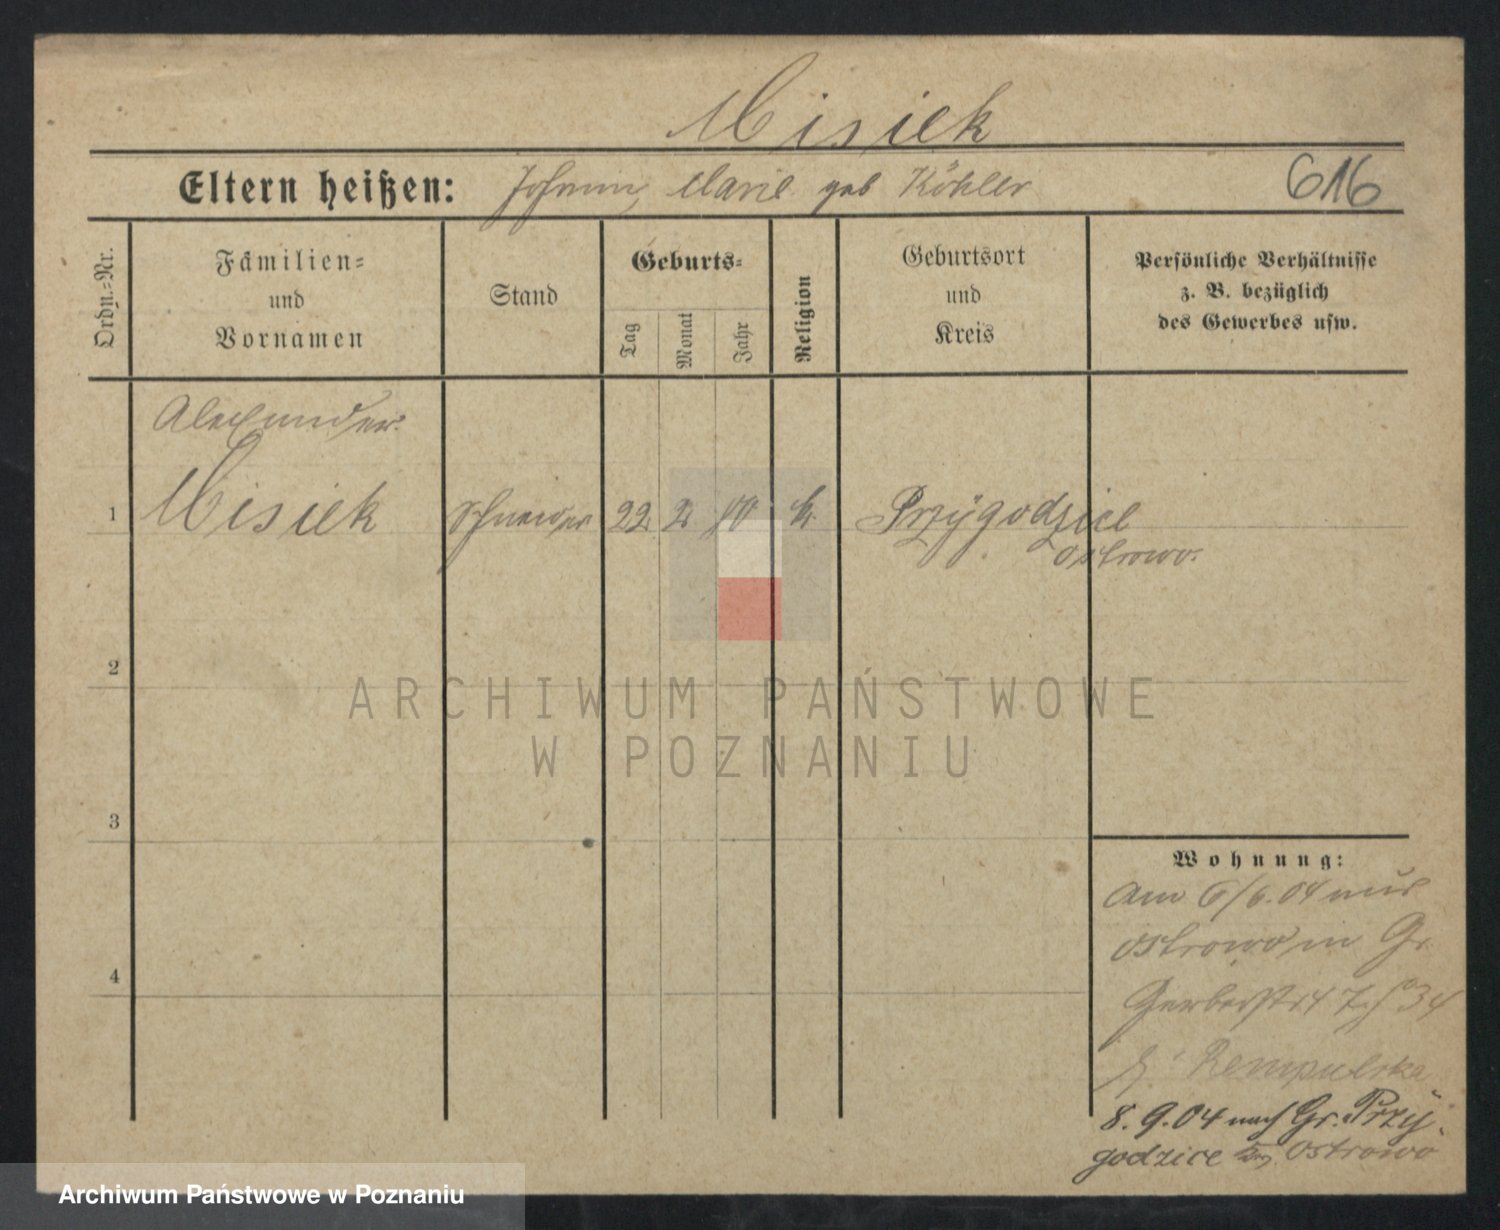 Misiek
Eltern heißen: Johann, Marie geb Köhler
616
Ordn.-Nr.
Familien-
und
Vornamen
Stand
Geburts-
Tag
Monat
Jahr
Religion
Geburtsort
und
Kreis
Persönliche Verhältnisse
z. B. bezüglich
des Gewerbes usw.
Alexander
1 Misiek Schneider 22. 2. k. Przygodzice
Ostrowo.
2
3
4
Wohnung:
Am 6/6.04 aus
Ostrowo in Gr.
Gerberstr 47
8.9.04 nach Gr. Przy-
godzice Ostrowo
ARCHIWUM PAŃSTWOWE
W POZNANIU
Archiwum Państwowe w Poznaniu